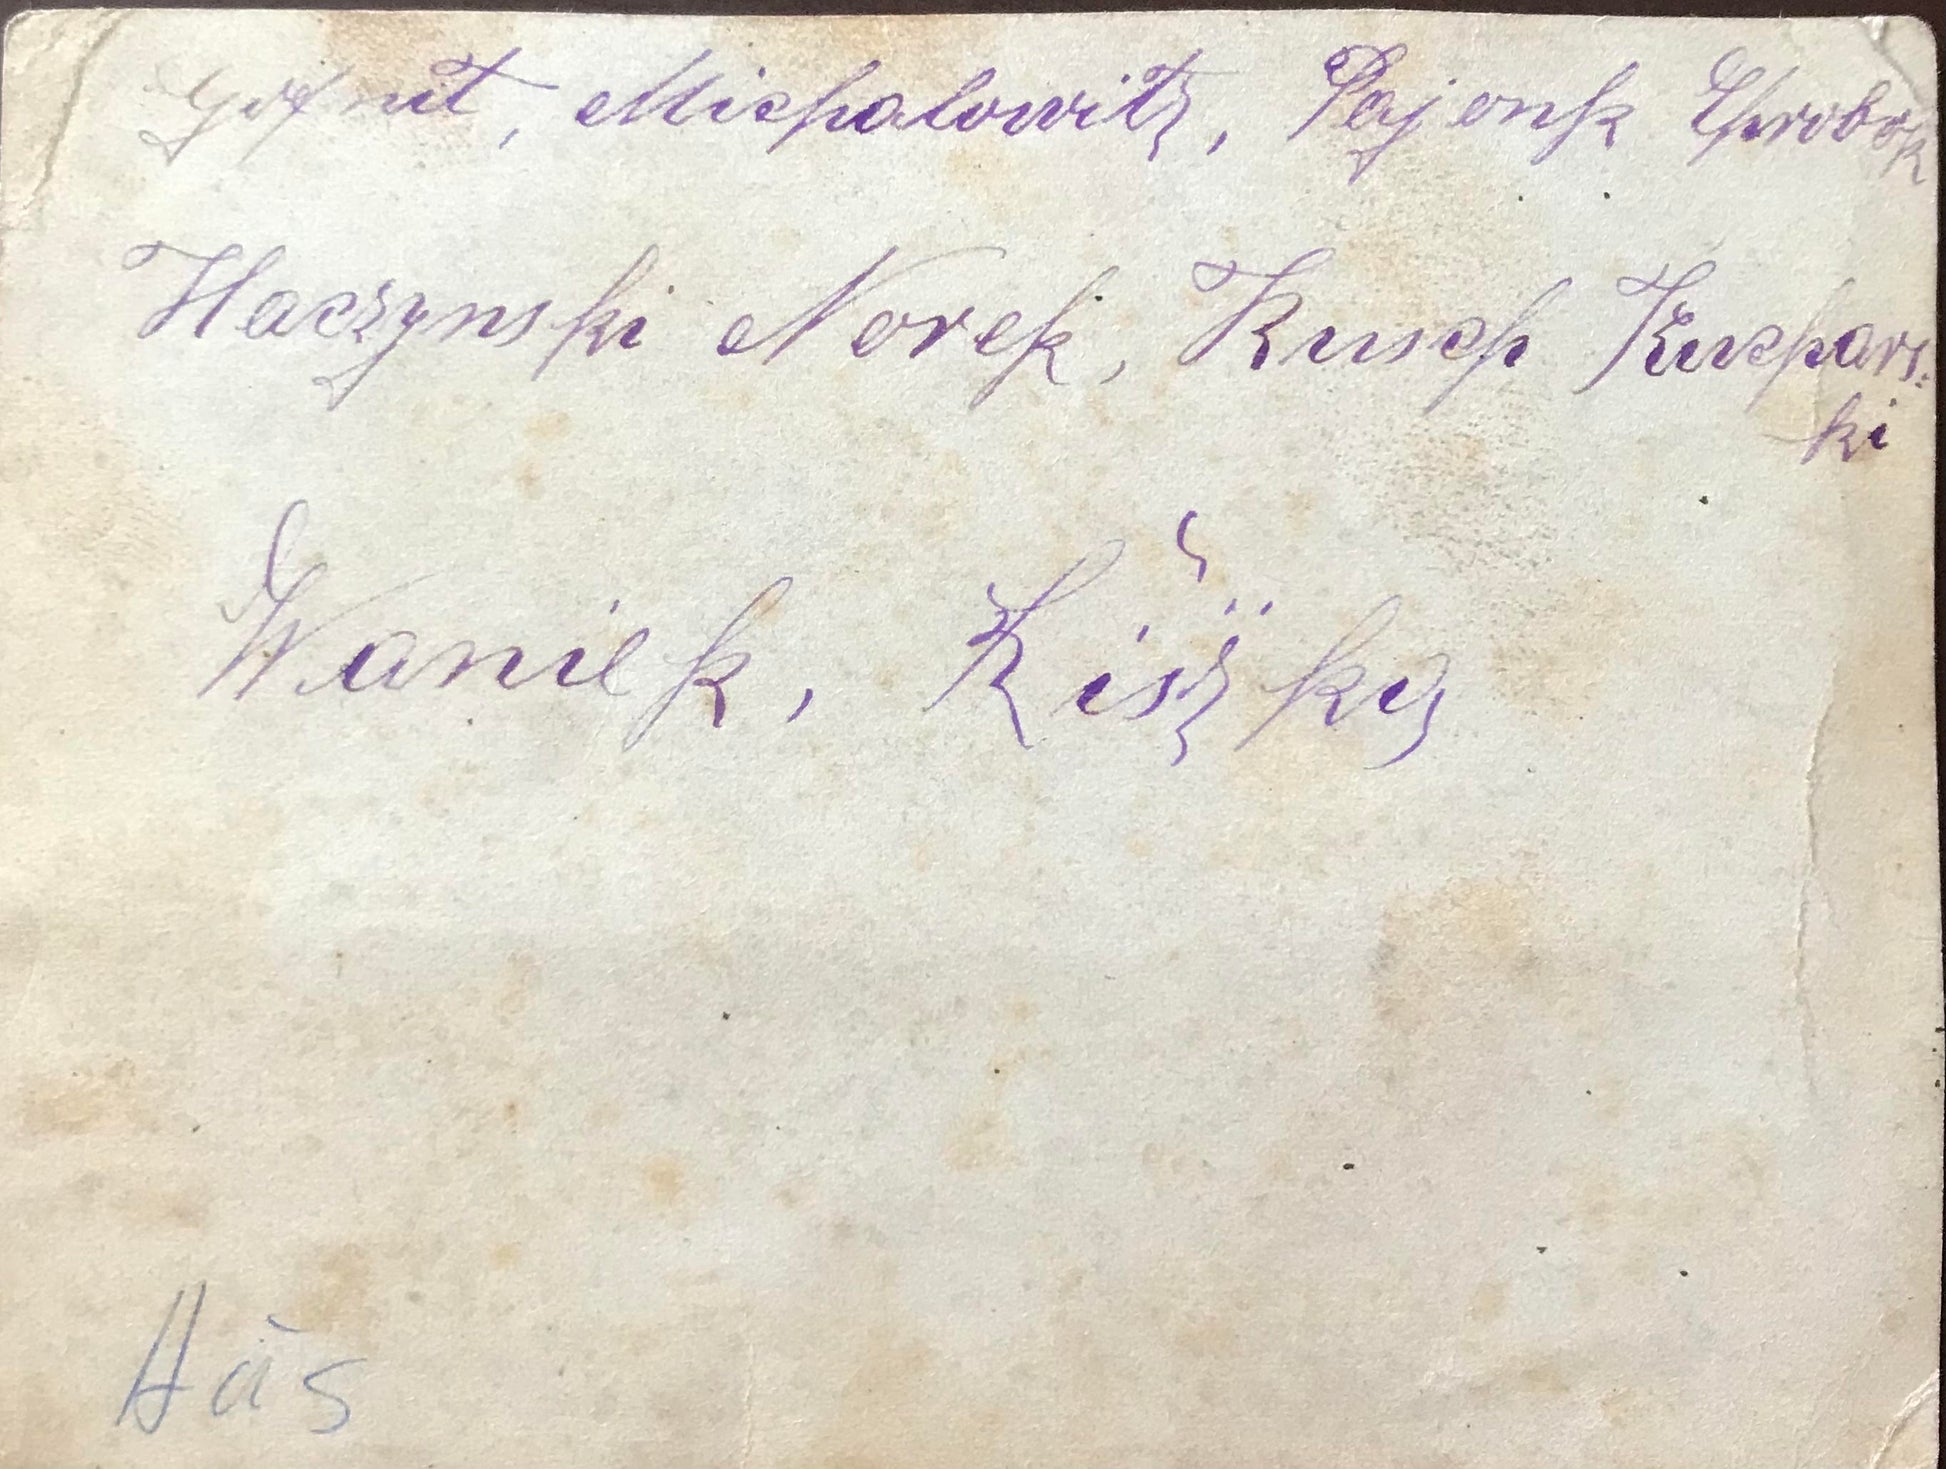 Michalowitz, Pajonk Chrobok
Haczynski Norek, Kusch Kuchars-
ki
Waniek, Kiszka